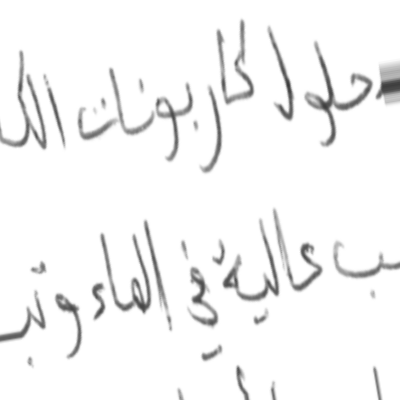 حلول كاربونات الكا
ب عالية في الماء وتبـ